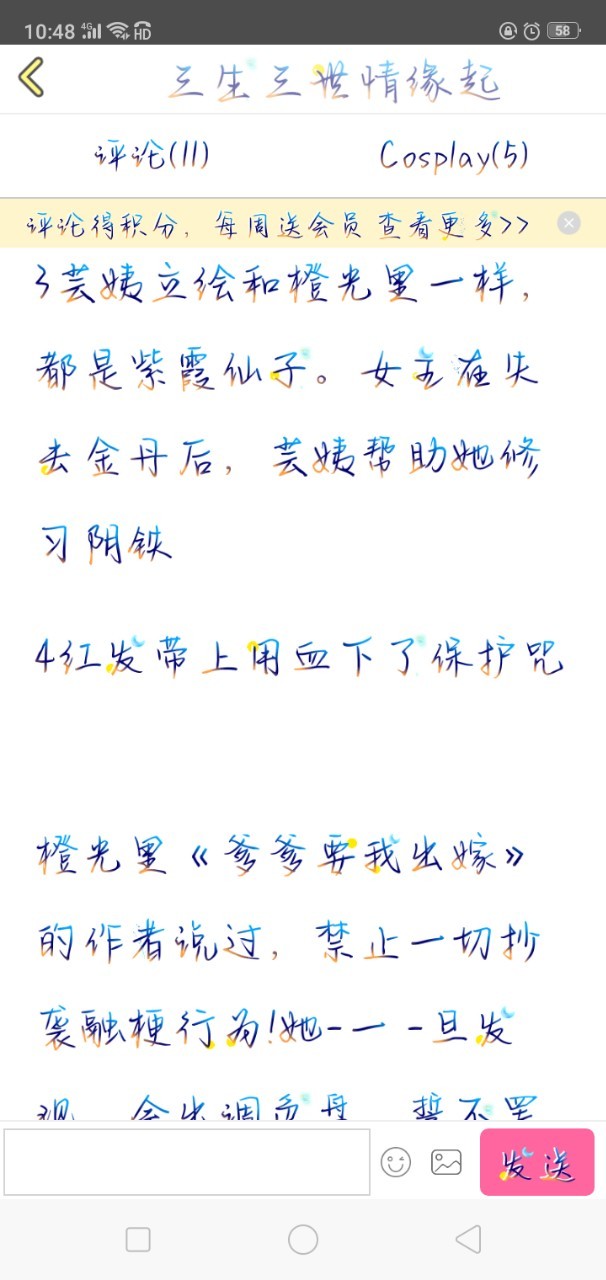 10:48 4G HD 58
三生三世情缘起
评论(11) Cosplay(5)
评论得积分，每周送会员 查看更多>>
3芸姨立绘和橙光里一样，
都是紫霞仙子。女主在失
去金丹后，芸姨帮助她修
习阴铁
4红发带上用血下了保护咒
橙光里《爹爹要我出嫁》
的作者说过，禁止一切抄
袭融梗行为!她-一 -旦发
发送